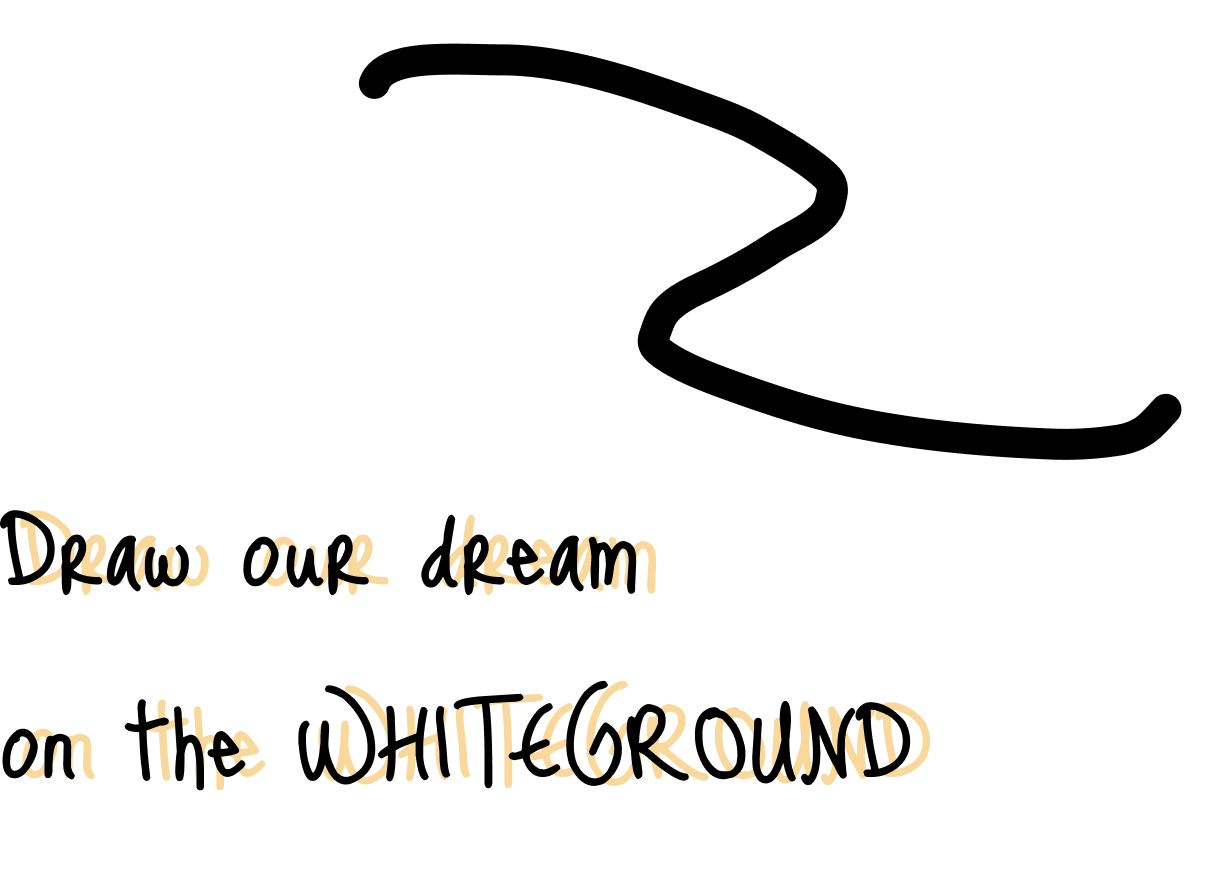 Draw our dream
on the WHITEGROUND